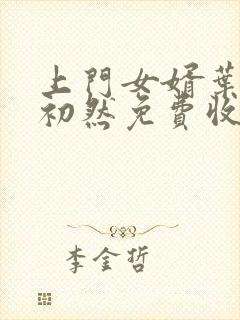 上門女婿葉
初然免費收
李金哲